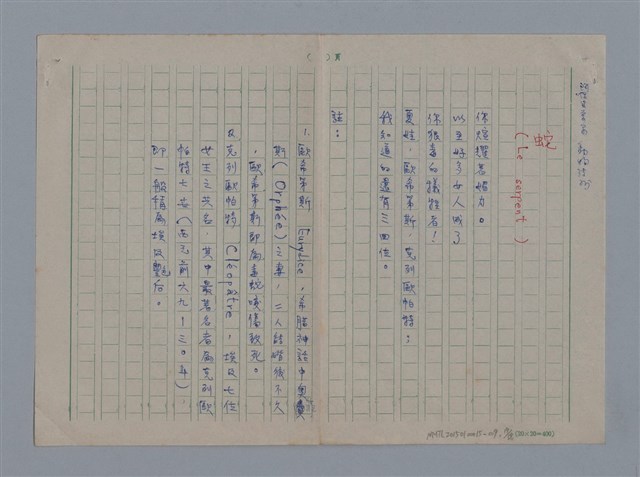 蛇
(Le serpent)
你炫耀著媚力。
以至好多女人成了
你狠毒的犧牲者!
夏娃,歐希第斯,克列歐帕特;
我知道的還有三四位。
註:
1. 歐希第斯 Eurydice,希臘神話中奧費
斯(Orphée)之妻,二人結婚後不久
,歐希第斯即為毒蛇咬傷致死。
2. 克列歐帕特 Cléopâtre,埃及七位
女王之共名,其中最著名者為克列歐
帕特七世(西元前六九-三0年),
即一般稱為埃及艷后。